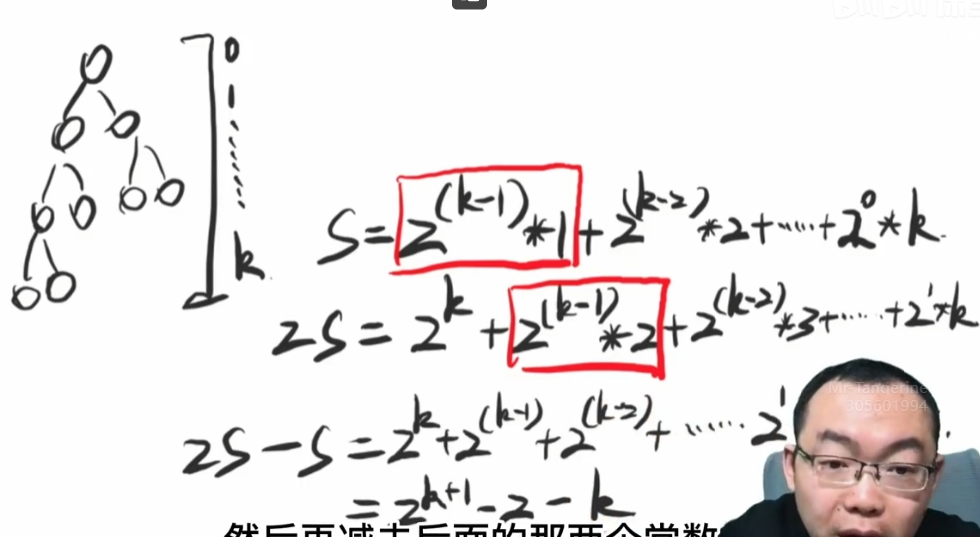 0
1
k.
S=2^(k-1)*1+2^(k-2)*2+……+2^0*k.
2S=2^k+2^(k-1)*2+2^(k-2)*3+……+2^1*k
2S-S=2^k+2^(k-1)+2^(k-2)+……2^1
=2^k+1-2-k
Mr Tangerine
305601994
然后再减去后面的那两个常数